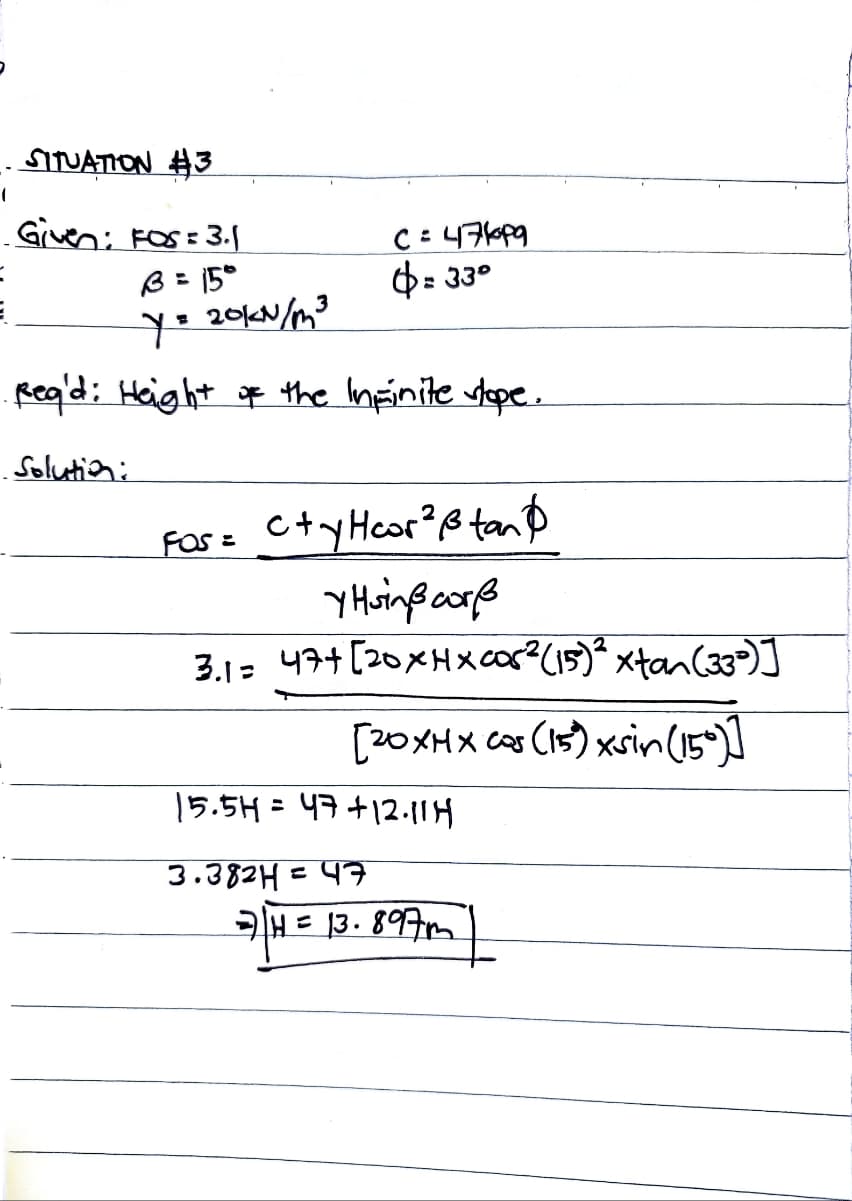 SITUATION #3
Given: FOS = 3.1 C = 47kpa
β = 15° ϕ = 33°
γ = 20kN/m³
Req'd: Height of the Infinite slope.
Solution:
FOS = C+γHcos²β tanϕ
γHsinβcosβ
3.1 = 47+[20×H×cos²(15)²×tan(33°)]
[20×H×cos(15°)×sin(15°)]
15.5H = 47+12.11H
3.382H = 47
⇒ H = 13.897m